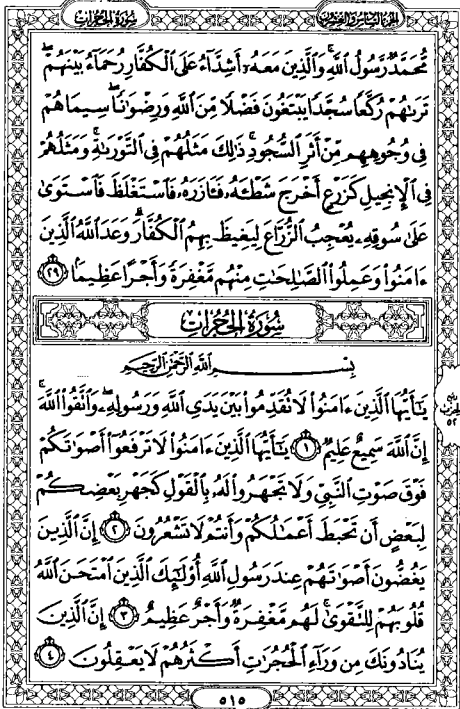 سُورَةُ الحُجُرَاتِ
مُّحَمَّدٌ رَّسُولُ ٱللَّهِ وَٱلَّذِينَ مَعَهُۥٓ أَشِدَّآءُ عَلَى ٱلْكُفَّارِ رُحَمَآءُ بَيْنَهُمْ
تَرَىٰهُمْ رُكَّعًا سُجَّدًا يَبْتَغُونَ فَضْلًا مِّنَ ٱللَّهِ وَرِضْوَٰنًا سِيمَاهُمْ
فِى وُجُوهِهِم مِّنْ أَثَرِ ٱلسُّجُودِ ذَٰلِكَ مَثَلُهُمْ فِى ٱلتَّوْرَىٰةِ وَمَثَلُهُمْ
فِى ٱلْإِنجِيلِ كَزَرْعٍ أَخْرَجَ شَطْـَٔهُۥ فَـَٔازَرَهُۥ فَٱسْتَغْلَظَ فَٱسْتَوَىٰ
عَلَىٰ سُوقِهِۦ يُعْجِبُ ٱلزُّرَّاعَ لِيَغِيظَ بِهِمُ ٱلْكُفَّارَ وَعَدَ ٱللَّهُ ٱلَّذِينَ
ءَامَنُوا۟ وَعَمِلُوا۟ ٱلصَّٰلِحَٰتِ مِنْهُم مَّغْفِرَةً وَأَجْرًا عَظِيمًۢا ٢٩
سُورَةُ الحُجُرَاتِ
بِسْمِ ٱللَّهِ ٱلرَّحْمَٰنِ ٱلرَّحِيمِ
يَٰٓأَيُّهَا ٱلَّذِينَ ءَامَنُوا۟ لَا تُقَدِّمُوا۟ بَيْنَ يَدَىِ ٱللَّهِ وَرَسُولِهِۦ وَٱتَّقُوا۟ ٱللَّهَ
إِنَّ ٱللَّهَ سَمِيعٌ عَلِيمٌ ١ يَٰٓأَيُّهَا ٱلَّذِينَ ءَامَنُوا۟ لَا تَرْفَعُوٓا۟ أَصْوَٰتَكُمْ
فَوْقَ صَوْتِ ٱلنَّبِىِّ وَلَا تَجْهَرُوا۟ لَهُۥ بِٱلْقَوْلِ كَجَهْرِ بَعْضِكُمْ
لِبَعْضٍ أَن تَحْبَطَ أَعْمَٰلُكُمْ وَأَنتُمْ لَا تَشْعُرُونَ ٢ إِنَّ ٱلَّذِينَ
يَغُضُّونَ أَصْوَٰتَهُمْ عِندَ رَسُولِ ٱللَّهِ أُو۟لَٰٓئِكَ ٱلَّذِينَ ٱمْتَحَنَ ٱللَّهُ
قُلُوبَهُمْ لِلتَّقْوَىٰ لَهُم مَّغْفِرَةٌ وَأَجْرٌ عَظِيمٌ ٣ إِنَّ ٱلَّذِينَ
يُنَادُونَكَ مِن وَرَآءِ ٱلْحُجُرَٰتِ أَكْثَرُهُمْ لَا يَعْقِلُونَ ٤
٥١٥